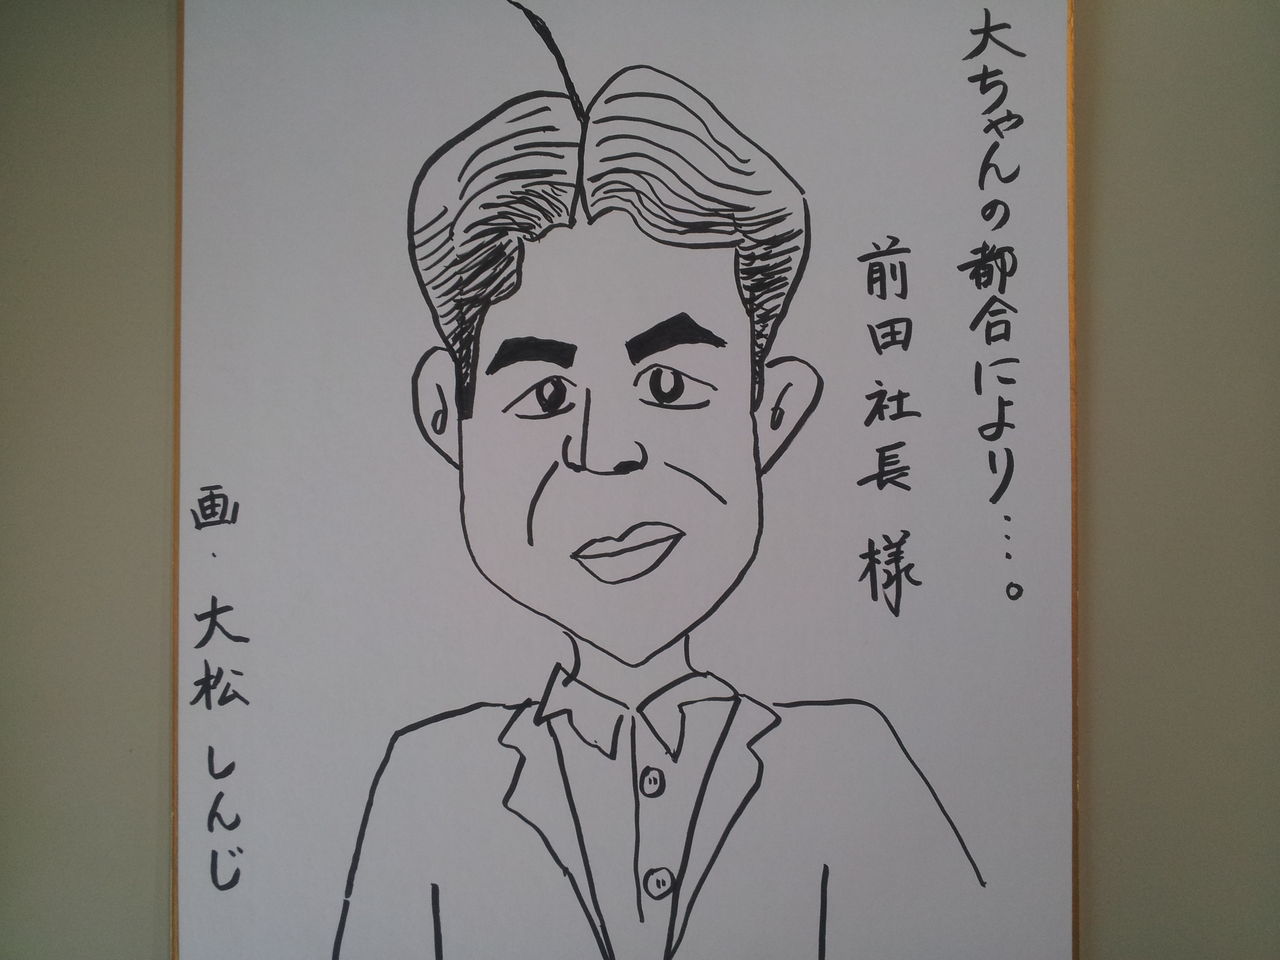 大ちゃんの都合により…。
前田社長様
画・大松しんじ